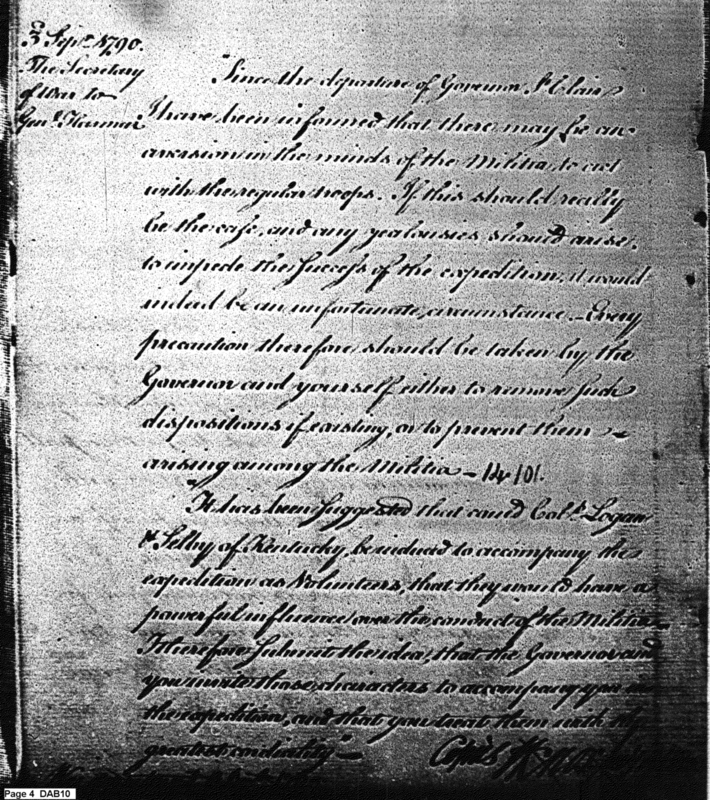 3 Sept. 1790.
The Secretary
of War to
Genl. Harmar
"Since the departure of Governor St Clair
I have been informed that there may be an
aversion in the minds of the Militia, to act
with the regular troops. If this should really
be the case, and any jealousies should arise,
to impede the success of the expedition, it would
indeed be an unfortunate circumstance. - Every
precaution therefore should be taken by the
Governor and yourself either to remove such
dispositions if existing, or to prevent them
arising among the Militia - 14
"It has been suggested that could Cols. Logan
& Selby of Kentucky, be induced to accompany the
expedition as Volunteers, that they would have a
powerful influence over the conduct of the Militia
I therefore submit the idea, that the Governor and
you invite those characters to accompany you in
the expedition, and that you treat them with the
greatest cordiality" -
Page 4 DAB10